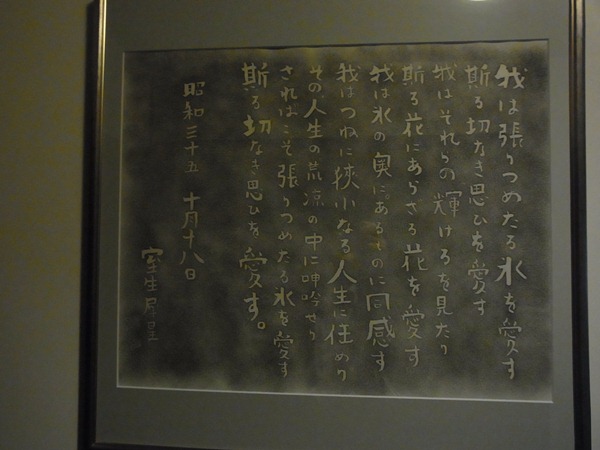 我は張りつめたる氷を愛す
斯る切なき思ひを愛す
我はそれらの輝けるを見たり
斯る花にあらざる花を愛す
我は氷の奥にあるものに同感す
我はつねに狭小なる人生に住めり
その人生の荒涼の中に呻吟せり
さればこそ張りつめたる氷を愛す
斯る切なき思ひを愛す。
昭和三十五 十月十八日
室生犀星